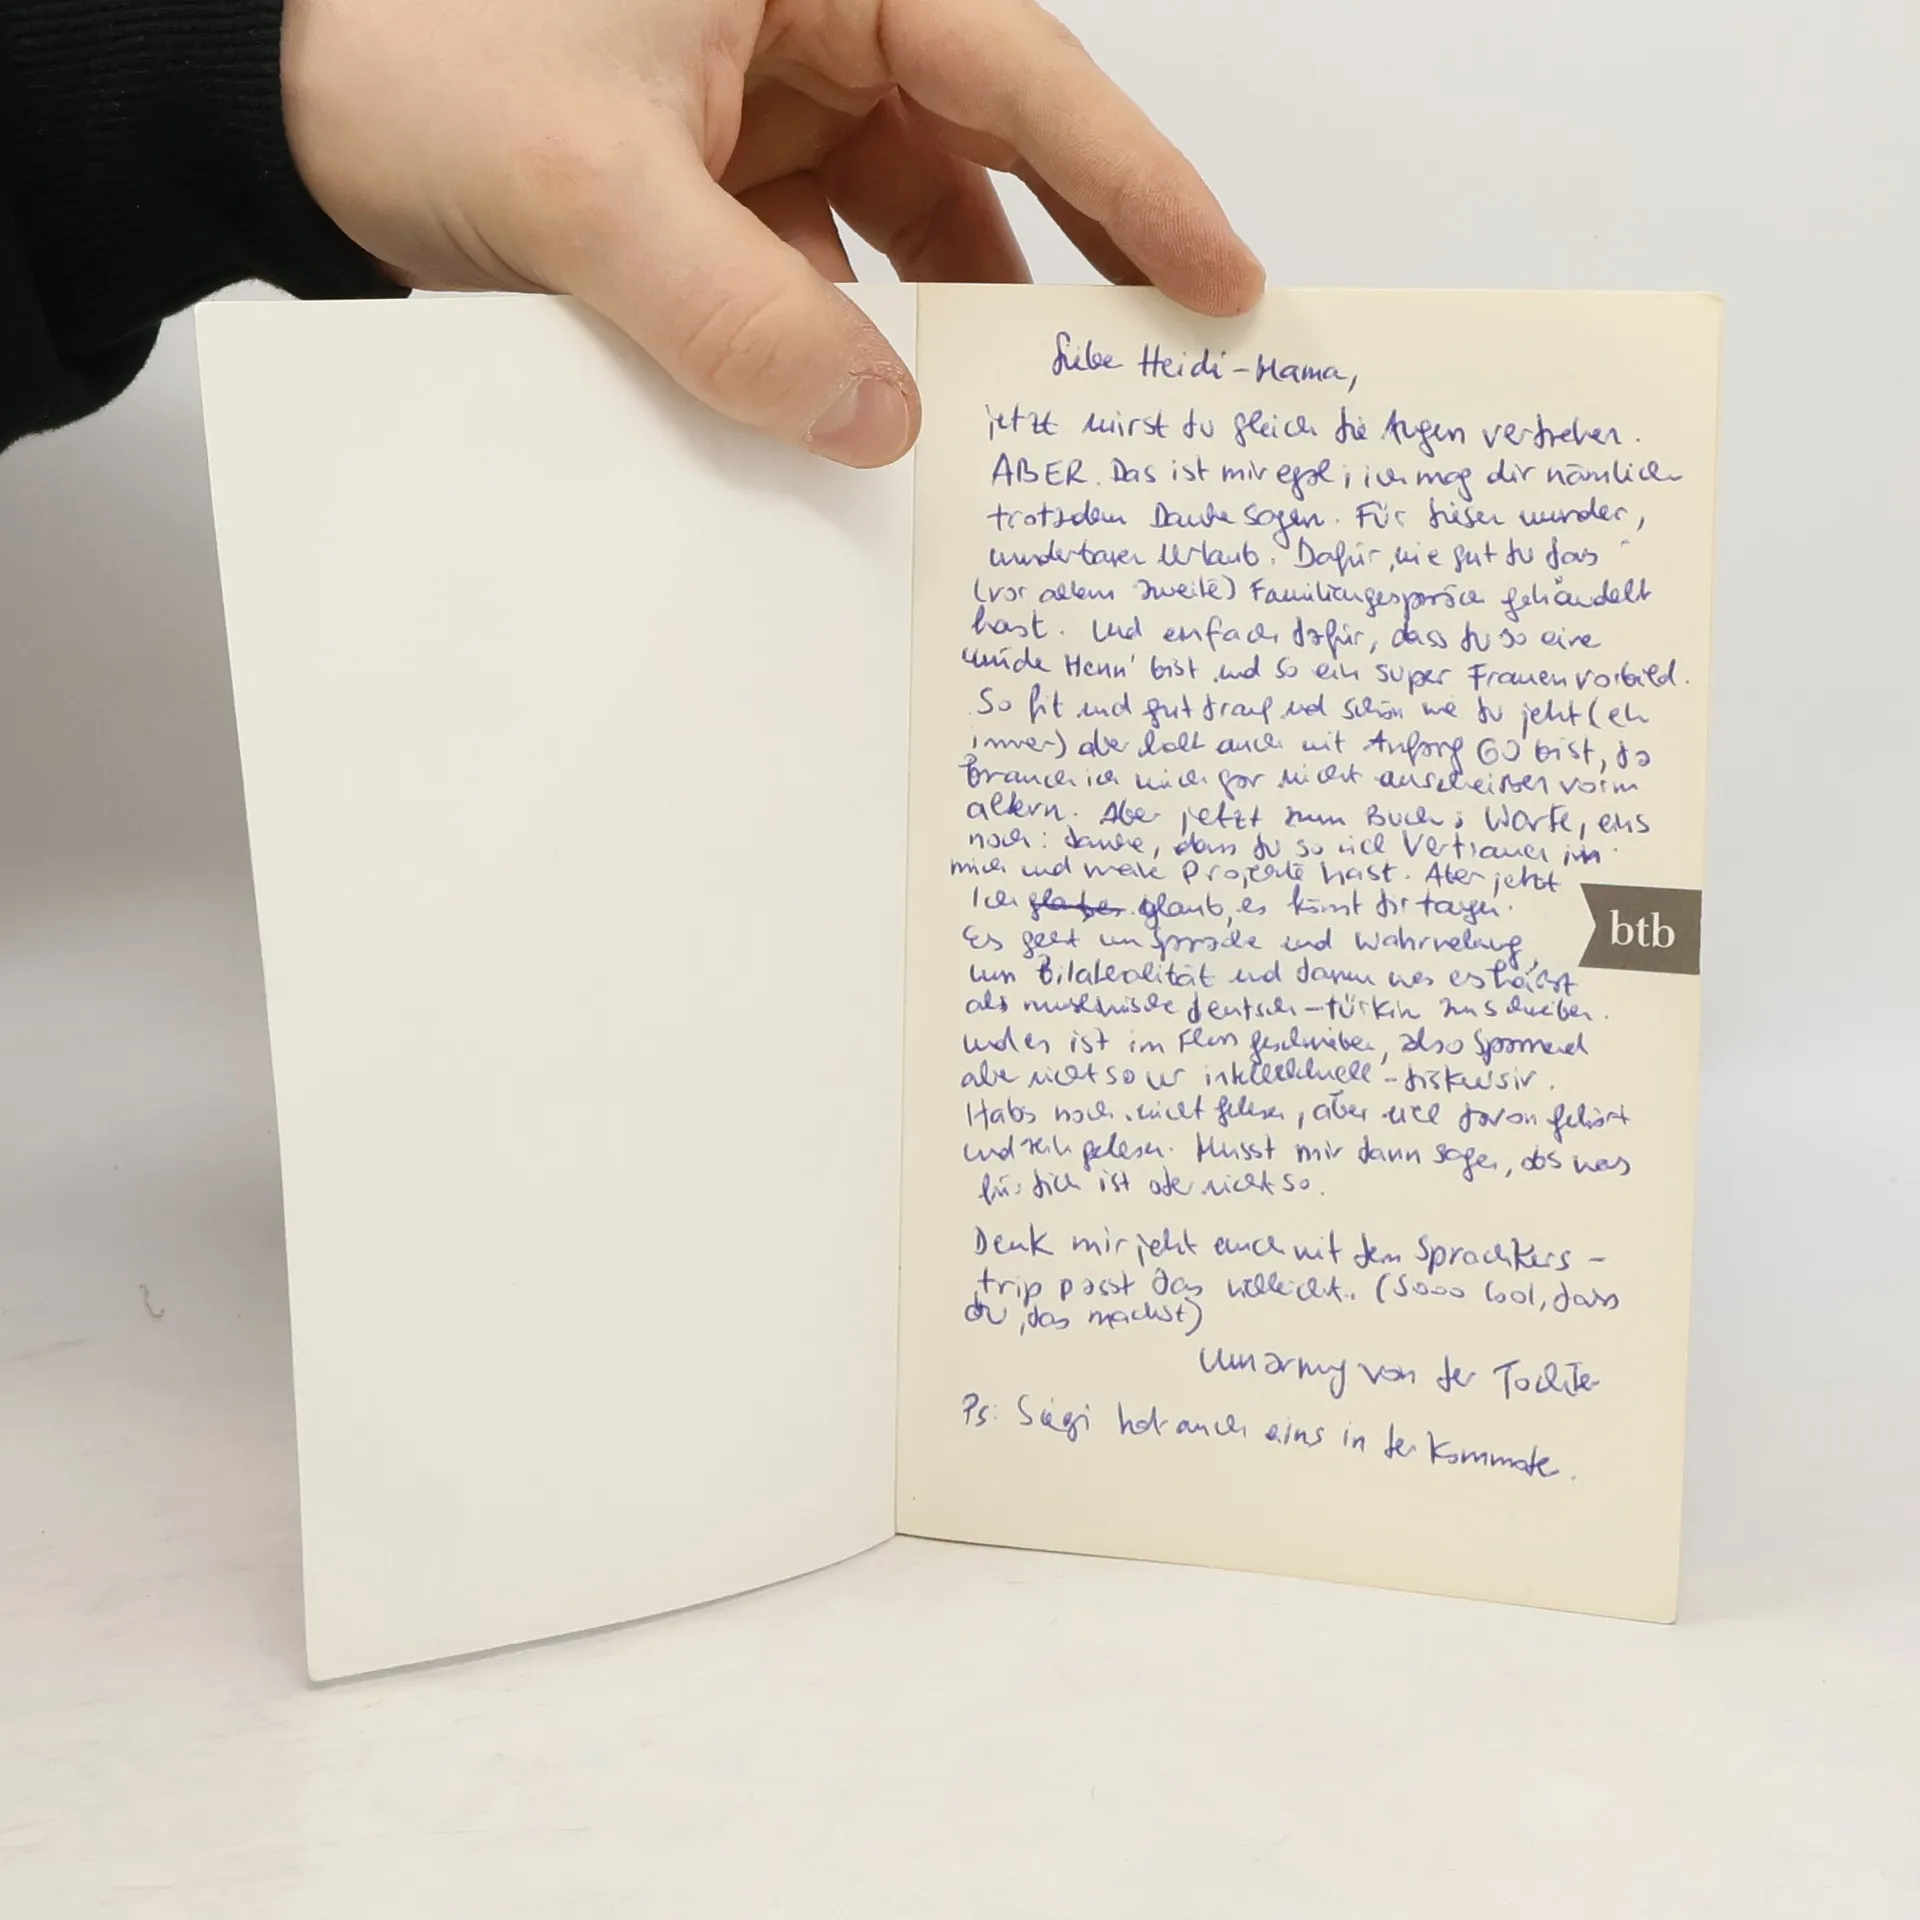 Liebe Heidi-Mama,
jetzt wirst du gleich die Augen verdrehen.
ABER. Das ist mir egal; ich mag dir nämlich
trotzdem Danke sagen. Für diesen wunder,
wunderbaren Urlaub. Dafür, wie gut du das
(vor allem zweite) Familiengespräch gehandelt
hast. Und einfach dafür, dass du so eine
Henn' bist und so ein super Frauenvorbild.
So fit und gut drauf und schön wie du jetzt (eh
immer) aber halt auch mit Anfang 60 bist, da
brauch ich mich gar nicht anscheißen vorm
altern. Aber jetzt zum Buch; Warte, eins
noch: danke, dass du so viel Vertrauen in
mich und meine Projekte hast. Aber jetzt
Ich glaub, es könnt dir taugen.
Es geht um Sprache und Wahrnehmung,
um Bilateralität und darum was es heißt
als muslimische deutsch-türkin zu schreiben.
Und es ist im Flow geschrieben, also spannend
aber nicht so ur intellektuell-diskursiv.
Habs noch nicht gelesen, aber viel davon gehört
und rein gelesen. Musst mir dann sagen, obs was
für dich ist oder nicht so.
Denk mir jetzt auch mit dem Sprachkurs-
trip passt das vielleicht. (Sooo cool, dass
du das machst)
Umarmung von der Tochter
Ps: Siegi hat auch eins in der Kommode.
btb